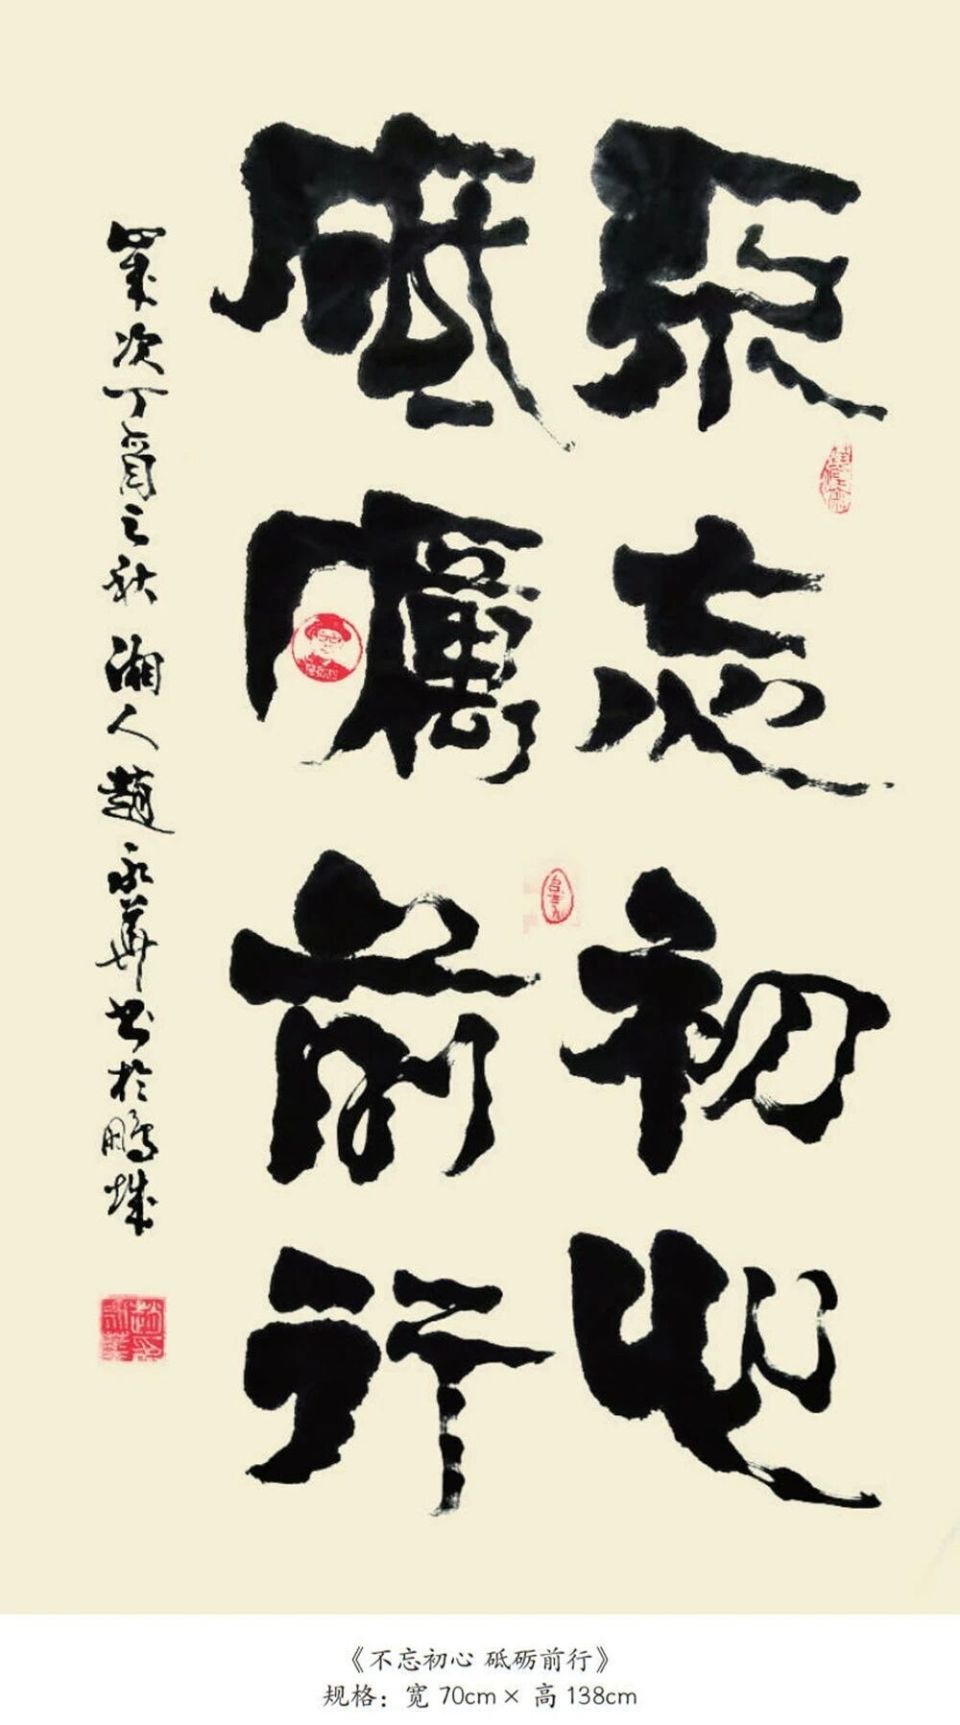 不忘初心
砥礪前行
歲次丁酉之秋 湘人趙永華书於鵬城
《不忘初心 砥砺前行》
规格：宽 70cm × 高 138cm